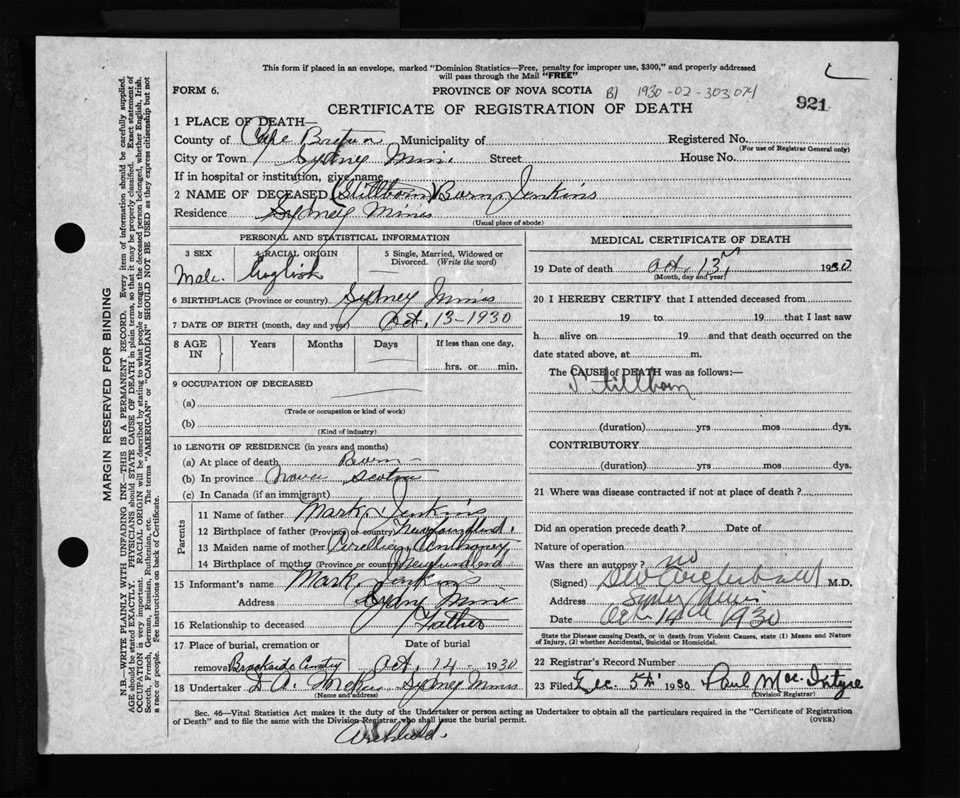 This form if placed in an envelope, marked "Dominion Statistics—Free, penalty for improper use, $300," and properly addressed
will pass through the Mail "FREE"
FORM 6.
PROVINCE OF NOVA SCOTIA B) 1930-02-303074
921
CERTIFICATE OF REGISTRATION OF DEATH
1 PLACE OF DEATH—
County of Cape Breton Municipality of Registered No.
(For use of Registrar General only)
City or Town Sydney Mines Street House No.
If in hospital or institution, give name
2 NAME OF DECEASED (Stillborn) Born Jenkins
Residence Sydney Mines
(Usual place of abode)
PERSONAL AND STATISTICAL INFORMATION
3 SEX 4 RACIAL ORIGIN 5 Single, Married, Widowed or
Divorced. (Write the word)
Male English
6 BIRTHPLACE (Province or country) Sydney Mines
7 DATE OF BIRTH (month, day and year) Oct. 13-1930
8 AGE
IN
Years Months Days If less than one day,
hrs. or min.
9 OCCUPATION OF DECEASED
(a)
(Trade or occupation or kind of work)
(b)
(Kind of industry)
10 LENGTH OF RESIDENCE (in years and months)
(a) At place of death Born
(b) In province Nova Scotia
(c) In Canada (if an immigrant)
Parents
11 Name of father Mark Jenkins
12 Birthplace of father (Province or country) Newfoundland.
13 Maiden name of mother
14 Birthplace of mother (Province or country) Newfoundland
15 Informant's name Mark Jenkins
Address Sydney Mines
16 Relationship to deceased Father
17 Place of burial, cremation or Date of burial
removal Brookside Oct. 14-1930
18 Undertaker D A Sydney Mines
(Name and address)
MEDICAL CERTIFICATE OF DEATH
19 Date of death Oct. 13, 1930
(Month, day and year)
20 I HEREBY CERTIFY that I attended deceased from
19 to 19 that I last saw
h alive on 19 and that death occurred on the
date stated above, at m.
The CAUSE of DEATH was as follows:—
Stillborn
(duration) yrs mos dys.
CONTRIBUTORY
(duration) yrs mos dys.
21 Where was disease contracted if not at place of death?
Did an operation precede death? Date of
Nature of operation
Was there an autopsy? no
(Signed) M.D.
Address Sydney Mines
Date Oct 14th 1930
State the Disease causing Death, or in death from Violent Causes, state (1) Means and Nature
of Injury, (2) whether Accidental, Suicidal or Homicidal.
22 Registrar's Record Number
23 Filed Dec. 5th 1930 Paul MacIntyre
(Division Registrar)
Sec. 46—Vital Statistics Act makes it the duty of the Undertaker or person acting as Undertaker to obtain all the particulars required in the "Certificate of Registration
of Death" and to file the same with the Division Registrar who shall issue the burial permit.
(OVER)
MARGIN RESERVED FOR BINDING
N.B.—WRITE PLAINLY WITH UNFADING INK—THIS IS A PERMANENT RECORD. Every item of information should be carefully supplied.
AGE should be stated EXACTLY. PHYSICIANS should STATE CAUSE OF DEATH in plain terms, so that it may be properly classified. Exact statement of
OCCUPATION is very important. RACIAL ORIGIN will be described by stating to what people or tongue the deceased person belonged, whether English, Irish,
Scotch, French, German, Russian, Ruthenian, etc. The terms "AMERICAN" or "CANADIAN" SHOULD NOT BE USED as they express citizenship but not
a race or people. See instructions on back of Certificate.